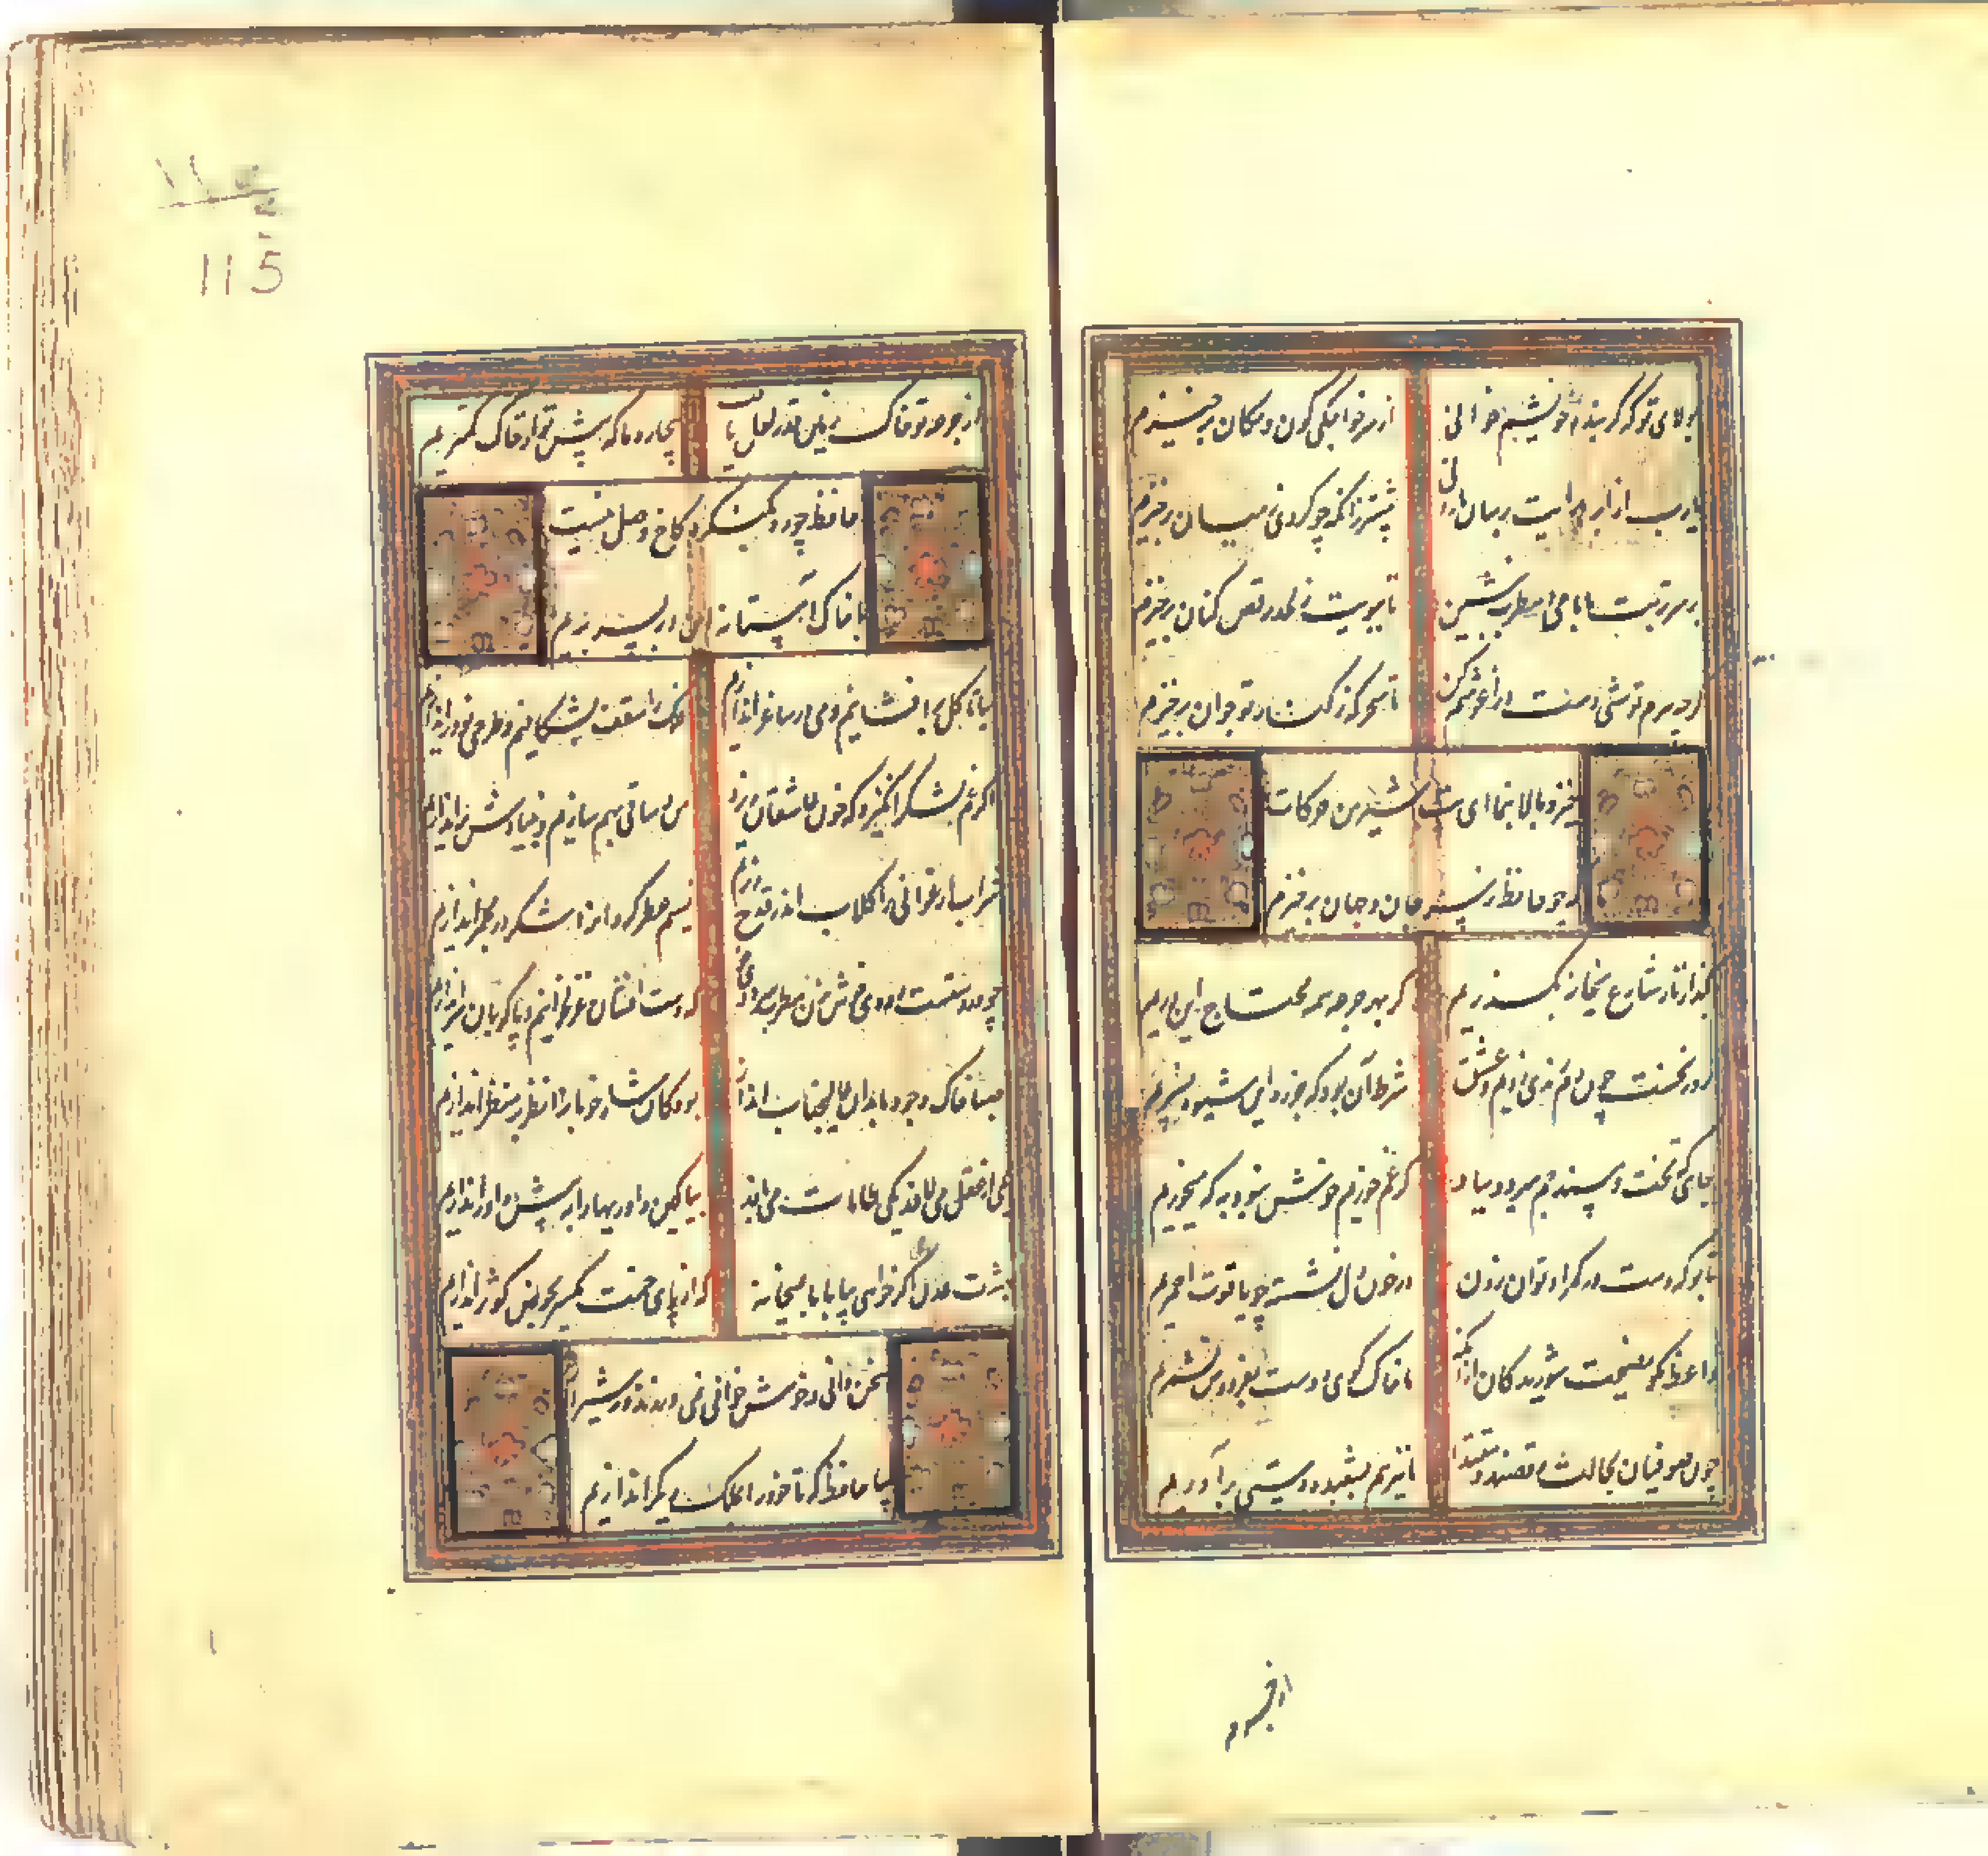 بولای تو که گر بنده خویشم خوانی از سر خواجگی کون و مکان برخیزم
یارب از ابر هدایت برسان بارانی پیشتر زانکه چو گردی ز میان برخیزم
بر سر تربت ما با می و مطرب بنشین تا ببویت ز لحد رقص کنان برخیزم
گرچه پیرم تو شبی دست در آغوشم کن تا سحرگه ز کنار تو جوان برخیزم
خیز و بالا بنما ای بت شیرین حرکات
که چو حافظ ز سر جان و جهان برخیزم
بگذار تا ز شارع میخانه بگذریم کز بهر جرعه همه محتاج این دریم
روز نخست چون دم رندی زدیم و عشق شرط آن بود که جز ره این شیوه نسپریم
جائی که تخت و مسند جم میرود بباد گر غم خوریم خوش نبود به که می خوریم
تا بو که دست در کمر او توان زدن در خون دل نشسته چو یاقوت احمریم
واعظ مکن نصیحت شوریدگان از آنکه ما خاک کوی دوست بفردوس ننگریم
چون صوفیان بحالت و رقصند مقتدا ما نیز هم بشعبده دستی برآوریم
از جرعه
از جرعه تو خاک زمین قدر لعل یافت بیچاره ما که پیش تو از خاک کمتریم
حافظ چو ره بکنگره کاخ وصل نیست
با خاک آستانه این در بسر بریم
بیا تا گل برافشانیم و می در ساغر اندازیم فلک را سقف بشکافیم و طرحی نو دراندازیم
اگر غم لشکر انگیزد که خون عاشقان ریزد من و ساقی بهم سازیم و بنیادش براندازیم
شراب ارغوانی را گلاب اندر قدح ریزیم نسیم عطر گردان را شکر در مجمر اندازیم
چو در دستست رودی خوش بزن مطرب سرودی خوش که دست افشان غزل خوانیم و پاکوبان سر اندازیم
صبا خاک وجود ما بدان عالیجناب انداز بود کان شاه خوبان را نظر بر منظر اندازیم
یکی از عقل می لافد یکی طامات می بافد بیا کین داوریها را به پیش داور اندازیم
بهشت عدن اگر خواهی بیا با ما بمیخانه که از پای خمت یکسر بحوض کوثر اندازیم
سخن دانی و خوش خوانی نمی ورزند در شیراز
بیا حافظ که تا خود را بملک دیگر اندازیم
۱۱۵
115